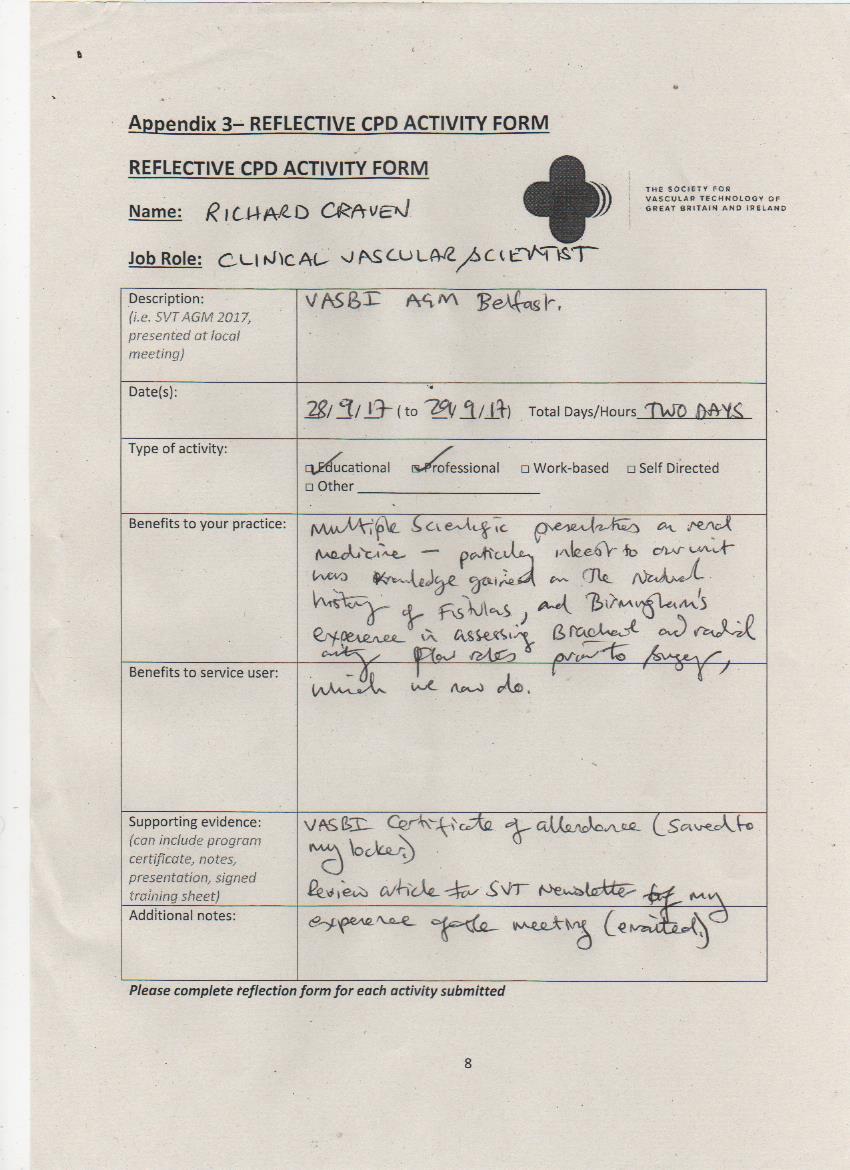 Appendix 3– REFLECTIVE CPD ACTIVITY FORM
REFLECTIVE CPD ACTIVITY FORM
THE SOCIETY FOR
VASCULAR TECHNOLOGY OF
GREAT BRITAIN AND IRELAND
Name: RICHARD CRAVEN
Job Role: CLINICAL VASCULAR SCIENTIST
Description:
(i.e. SVT AGM 2017,
presented at local
meeting)
VASBI AGM Belfast.
Date(s):
28/9/17 (to 29/9/17) Total Days/Hours TWO DAYS
Type of activity:
Educational Professional Work-based Self Directed
Other
Benefits to your practice:
Multiple Scientific presentations on renal
medicine – particular interest to our unit
was knowledge gained on The Natural
history of Fistulas, and Birmingham's
experience in assessing Brachial and radial
artery flow rates prior to surgery,
Benefits to service user:
which we now do.
Supporting evidence:
(can include program
certificate, notes,
presentation, signed
training sheet)
VASBI Certificate of attendance (saved to
my locker.)
Review article for SVT Newsletter of my
Additional notes:
experience of the meeting (emailed.)
Please complete reflection form for each activity submitted
8